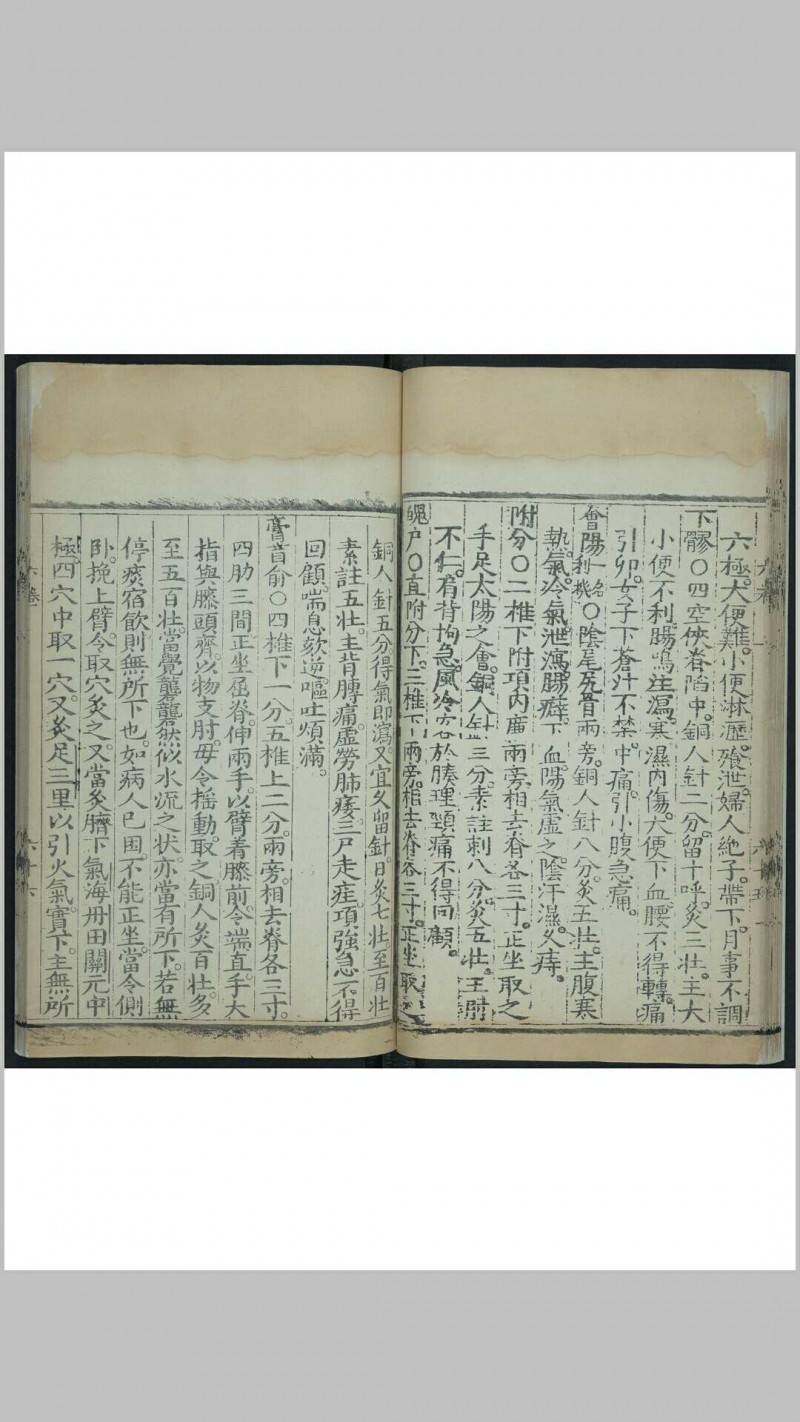 六極。大便難。小便淋瀝。飱泄。婦人絶子。帶下。月事不調
下髎〇四空俠脊陷中。銅人針二分。留十呼。灸三壯。主大
小便不利。腸鳴注瀉。寒濕内傷。大便下血。腰不得轉。痛
引卵。女子下蒼汁不禁。中痛。引小腹急痛。
會陽一名利機〇陰尾尻骨兩旁。銅人針八分。灸五壯。主腹寒
熱氣。冷氣泄瀉。腸癖下血。陽氣虛乏。陰汗濕。久痔。
附分〇二椎下附項内廉兩旁。相去脊各三寸。正坐取之
手足太陽之會。銅人針三分。素註刺八分。灸五壯。主肘
不仁。肩背拘急。風冷客於腠理。頸痛不得回顧。
魄戶〇直附分下。三椎下兩旁。相去脊各三寸。正坐取之
銅人針五分。得氣即瀉。又宜久留針。日灸七壯。至百壯
素註五壯。主背膊痛。虛勞肺痿。三尸走疰。項強急不得
回顧。喘息欬逆。嘔吐煩滿。
膏肓俞〇四椎下一分。五椎上二分。兩旁。相去脊各三寸。
四肋三間。正坐屈脊。伸兩手。以臂着膝前。令端直。手大
指與膝頭齊。以物支肘。毋令揺動。取之。銅人灸百壯。多
至五百壯。當覺礱礱然似水流之状。亦當有所下。若無
停痰宿飲。則無所下也。如病人已困。不能正坐。當令側
卧。挽上臂。令取穴灸之。又當灸臍下氣海。丹田。關元。中
極。四穴中取一穴。又灸足三里。以引火氣。實下。主無所
六卷
六十六